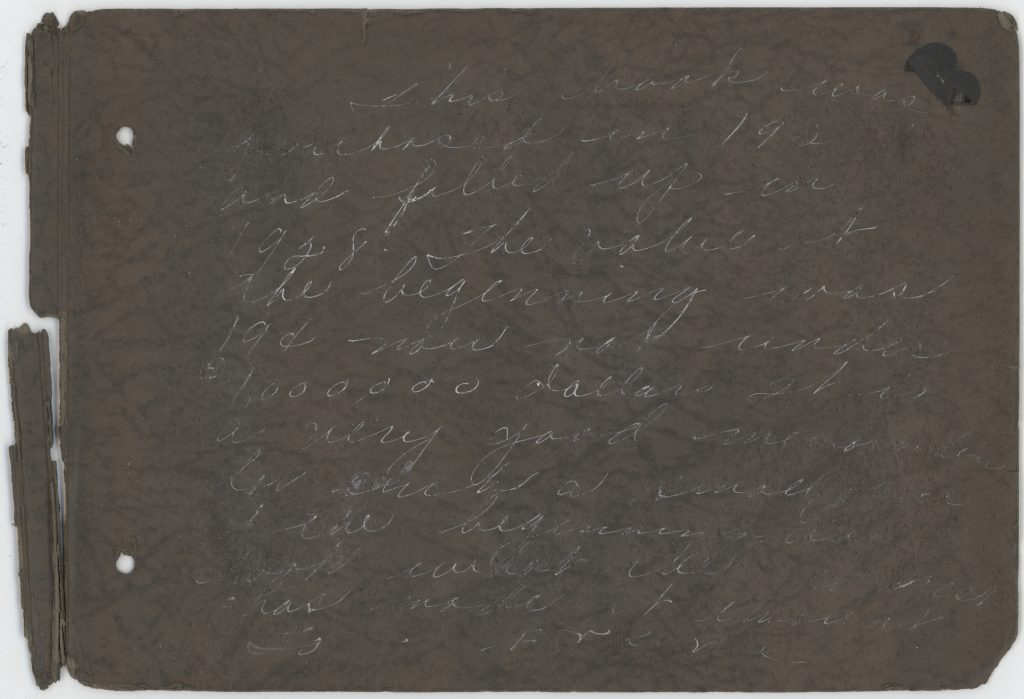 This book was
purchased in 192
and filled up in
1928. The value at
the beginning was
19¢ now not under
1,000,000 dollars It is
a very good
for such a small
the beginning
look what
has made it amount
to